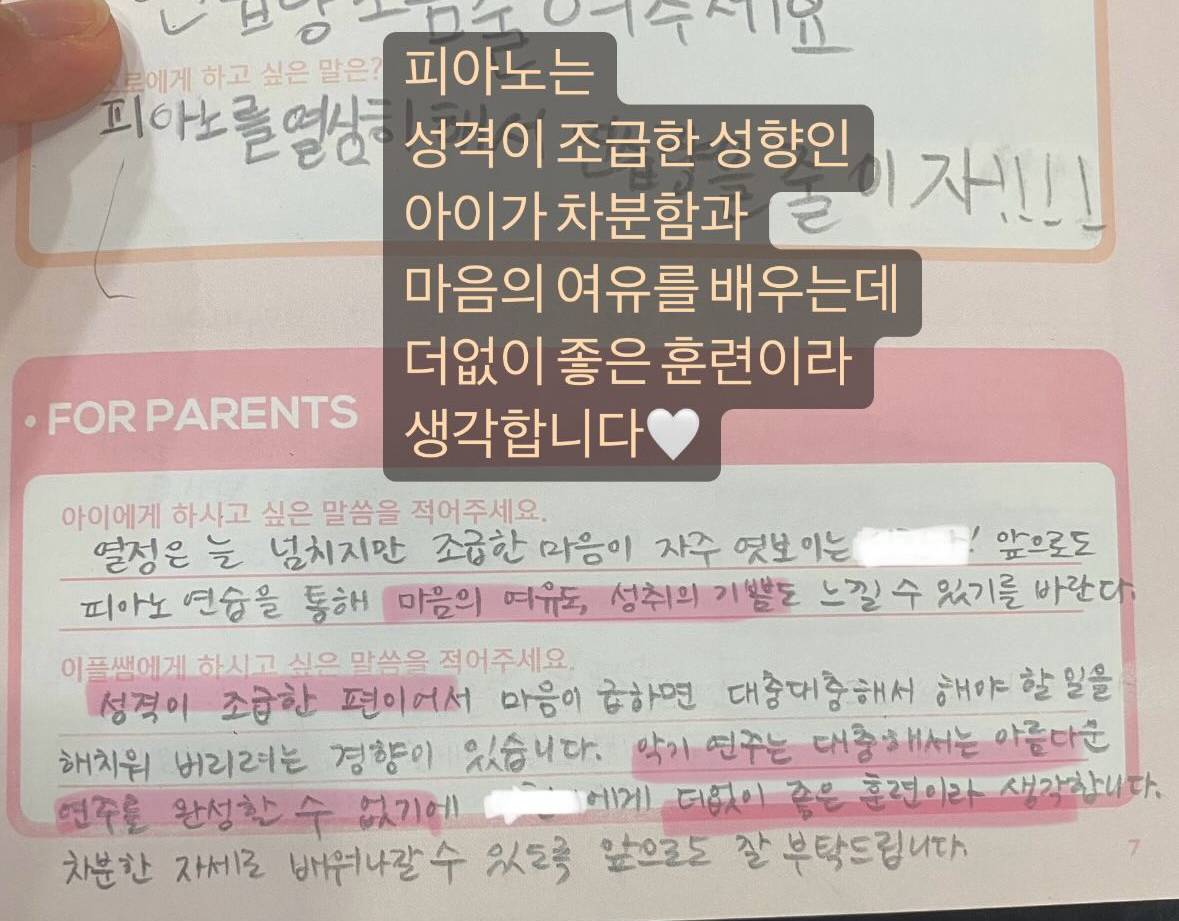 연습량 조금숨 여주세요
스로에게 하고 싶은 말은?
피아노를 열심히 해서 연습량을 줄이자!!!!
피아노는
성격이 조급한 성향인
아이가 차분함과
마음의 여유를 배우는데
더없이 좋은 훈련이라
생각합니다🤍
• FOR PARENTS
아이에게 하시고 싶은 말씀을 적어주세요.
열정은 늘 넘치지만 조급한 마음이 자주 엿보이는 ! 앞으로도
피아노 연습을 통해 마음의 여유도, 성취의 기쁨도 느낄 수 있기를 바란다.
이플쌤에게 하시고 싶은 말씀을 적어주세요.
성격이 조급한 편이어서 마음이 급하면 대충대충해서 해야 할 일을
해치워 버리려는 경향이 있습니다. 악기 연주는 대충해서는 아름다운
연주를 완성할 수 없기에 에게 더없이 좋은 훈련이라 생각합니다.
차분한 자세로 배워나갈 수 있도록 앞으로도 잘 부탁드립니다.
7